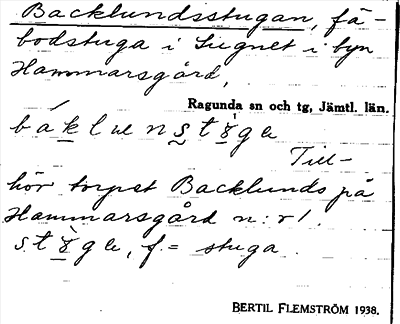 Backlundsstugan, fä-
bodstuga i Lugnet i byn
Hammarsgård,
Ragunda sn och tg, Jämtl. län.
Till-
hör torpet Backlunds på
Hammarsgård n:r 1.
f. = stuga.
BERTIL FLEMSTRÖM 1938.